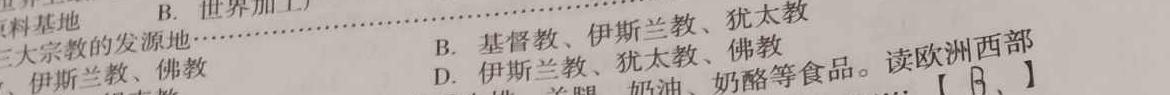 料基地 B. 世界加工厂
三大宗教的发源地……………………
B. 基督教、伊斯兰教、犹太教
、伊斯兰教、佛教
D. 伊斯兰教、犹太教、佛教
奶油、奶酪等食品。读欧洲西部
……【 B、 】